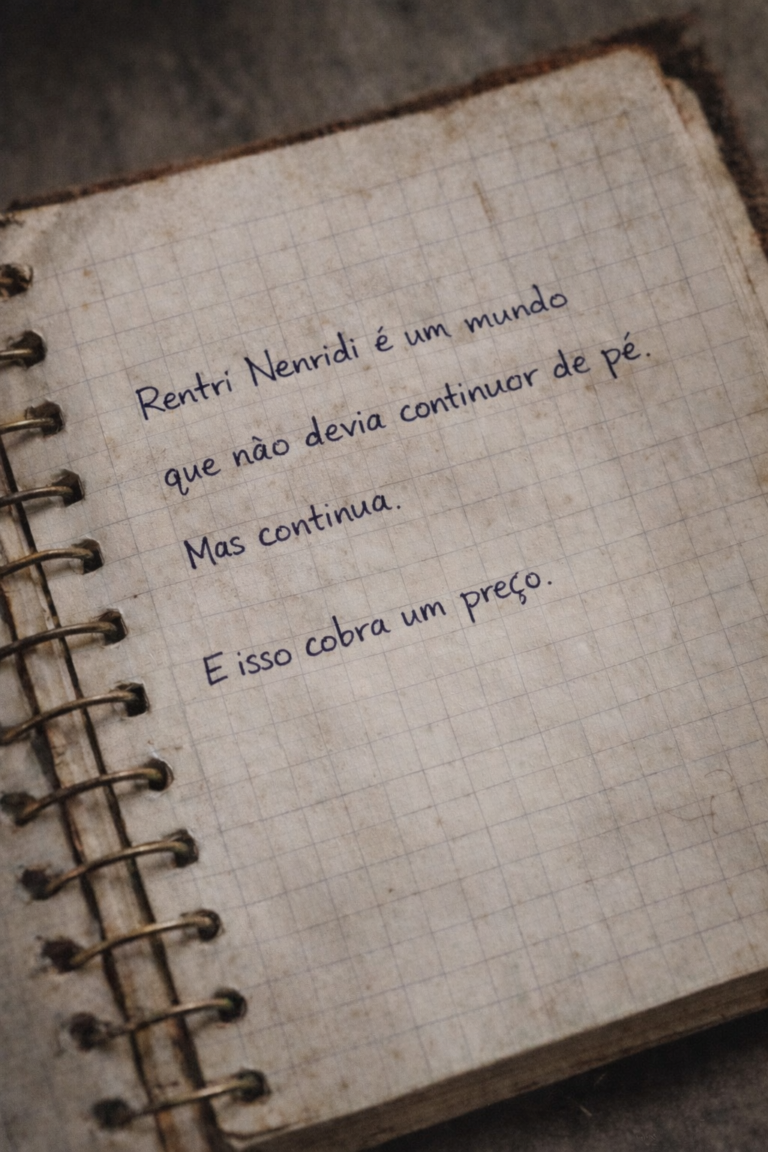 Rentri Nenridi é um mundo
que não devia continuar de pé.
Mas continua.
E isso cobra um preço.